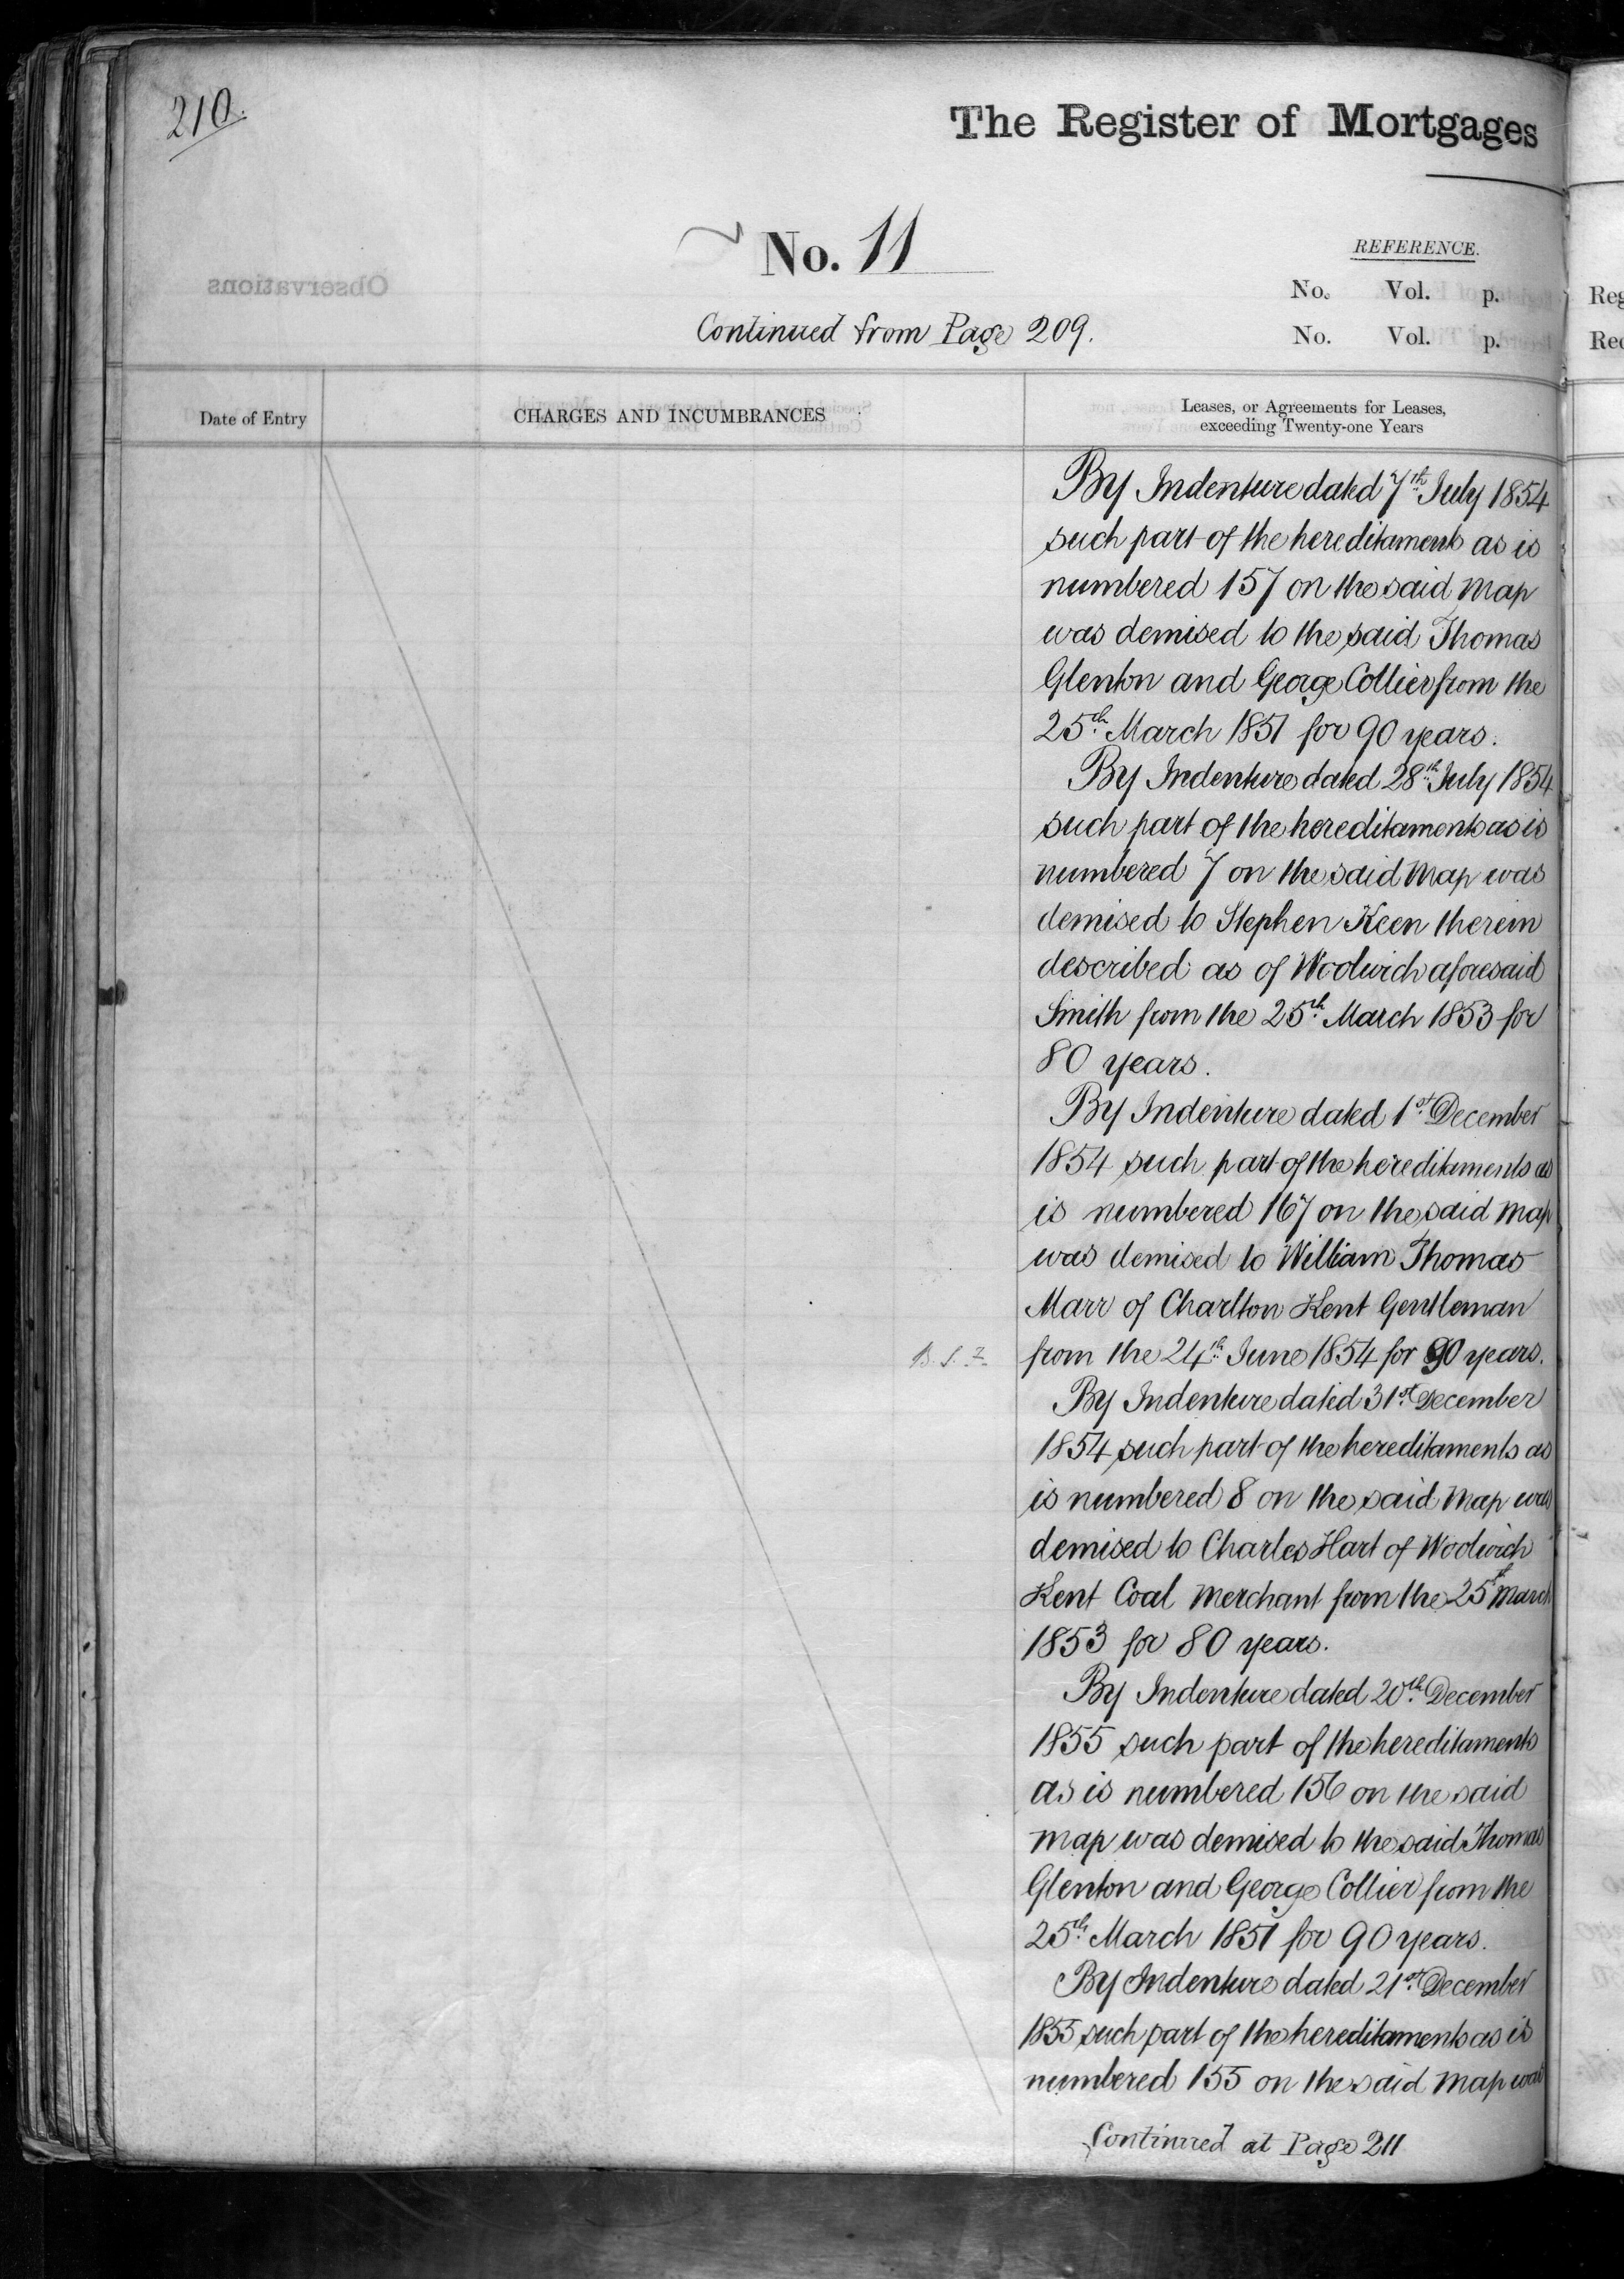 210.
The Register of Mortgages
No. 11
REFERENCE.
No. Vol. p.
No. Vol. p.
Continued from Page 209.
Date of Entry
CHARGES AND INCUMBRANCES
Leases, or Agreements for Leases,
exceeding Twenty-one Years
By Indenture dated 7th July 1854
such part of the hereditaments as is
numbered 157 on the said Map
was demised to the said Thomas
Glenton and George Collier from the
25th March 1851 for 90 years.
By Indenture dated 28th July 1854
such part of the hereditaments as is
numbered 7 on the said Map was
demised to Stephen Keen therein
described as of Woolwich aforesaid
Smith from the 25th March 1853 for
80 years.
By Indenture dated 1st December
1854 such part of the hereditaments as
is numbered 167 on the said Map
was demised to William Thomas
Marr of Charlton Kent Gentleman
from the 24th June 1854 for 90 years.
By Indenture dated 31st December
1854 such part of the hereditaments as
is numbered 8 on the said Map was
demised to Charles Hart of Woolwich
Kent Coal Merchant from the 25th March
1853 for 80 years.
By Indenture dated 20th December
1855 such part of the hereditaments
as is numbered 156 on the said
Map was demised to the said Thomas
Glenton and George Collier from the
25th March 1851 for 90 years.
By Indenture dated 21st December
1855 such part of the hereditaments as is
numbered 155 on the said Map was
Continued at Page 211